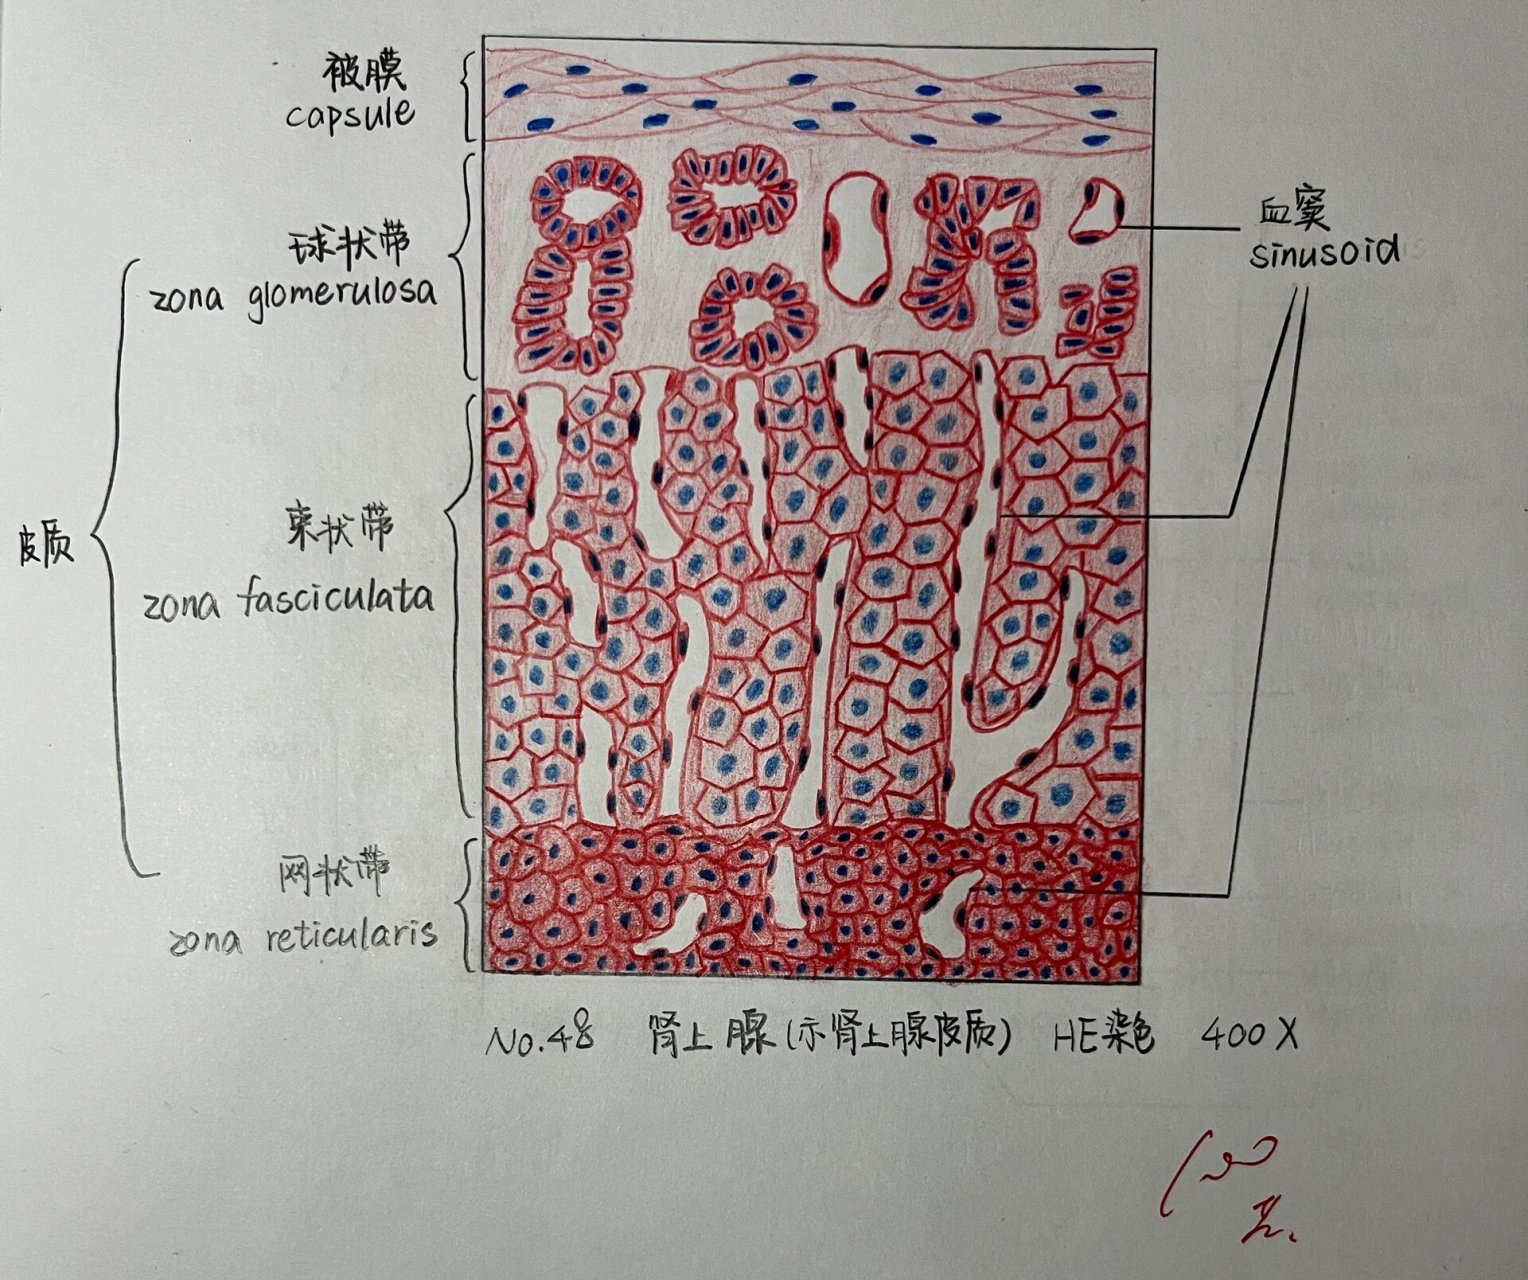 被膜
capsule
球状带
zona glomerulosa
血窦
sinusoid
皮质
束状带
zona fasciculata
网状带
zona reticularis
No.48 肾上腺(示肾上腺皮质) HE染色 400X